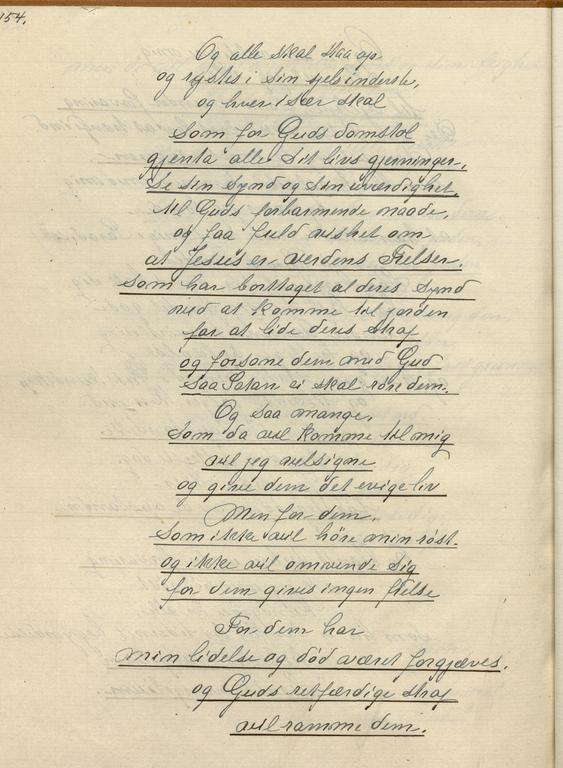 154.
Og alle skal staa op
og rystes i sin sjels inderste,
og hver især skal
som for Guds domstol
gjenta alle sit livs gjerninger,
se sin synd og sin uværdighet,
til Guds forbarmende naade,
og faa fuld vishet om
at Jesus er verdens Frelser,
som har borttaget al deres synd
ved at komme til jorden
for at lide deres straf
og forsone dem med Gud
saa Satan ei skal røre dem.
Og saa mange,
som da vil komme til mig
vil jeg velsigne
og give dem det evige liv
Men for dem,
som ikke vil höre min röst.
og ikke vil omvende sig
for dem gives ingen frelse
For dem har
min lidelse og död været forgjæves.
og Guds retfærdige straf
vil ramme dem.